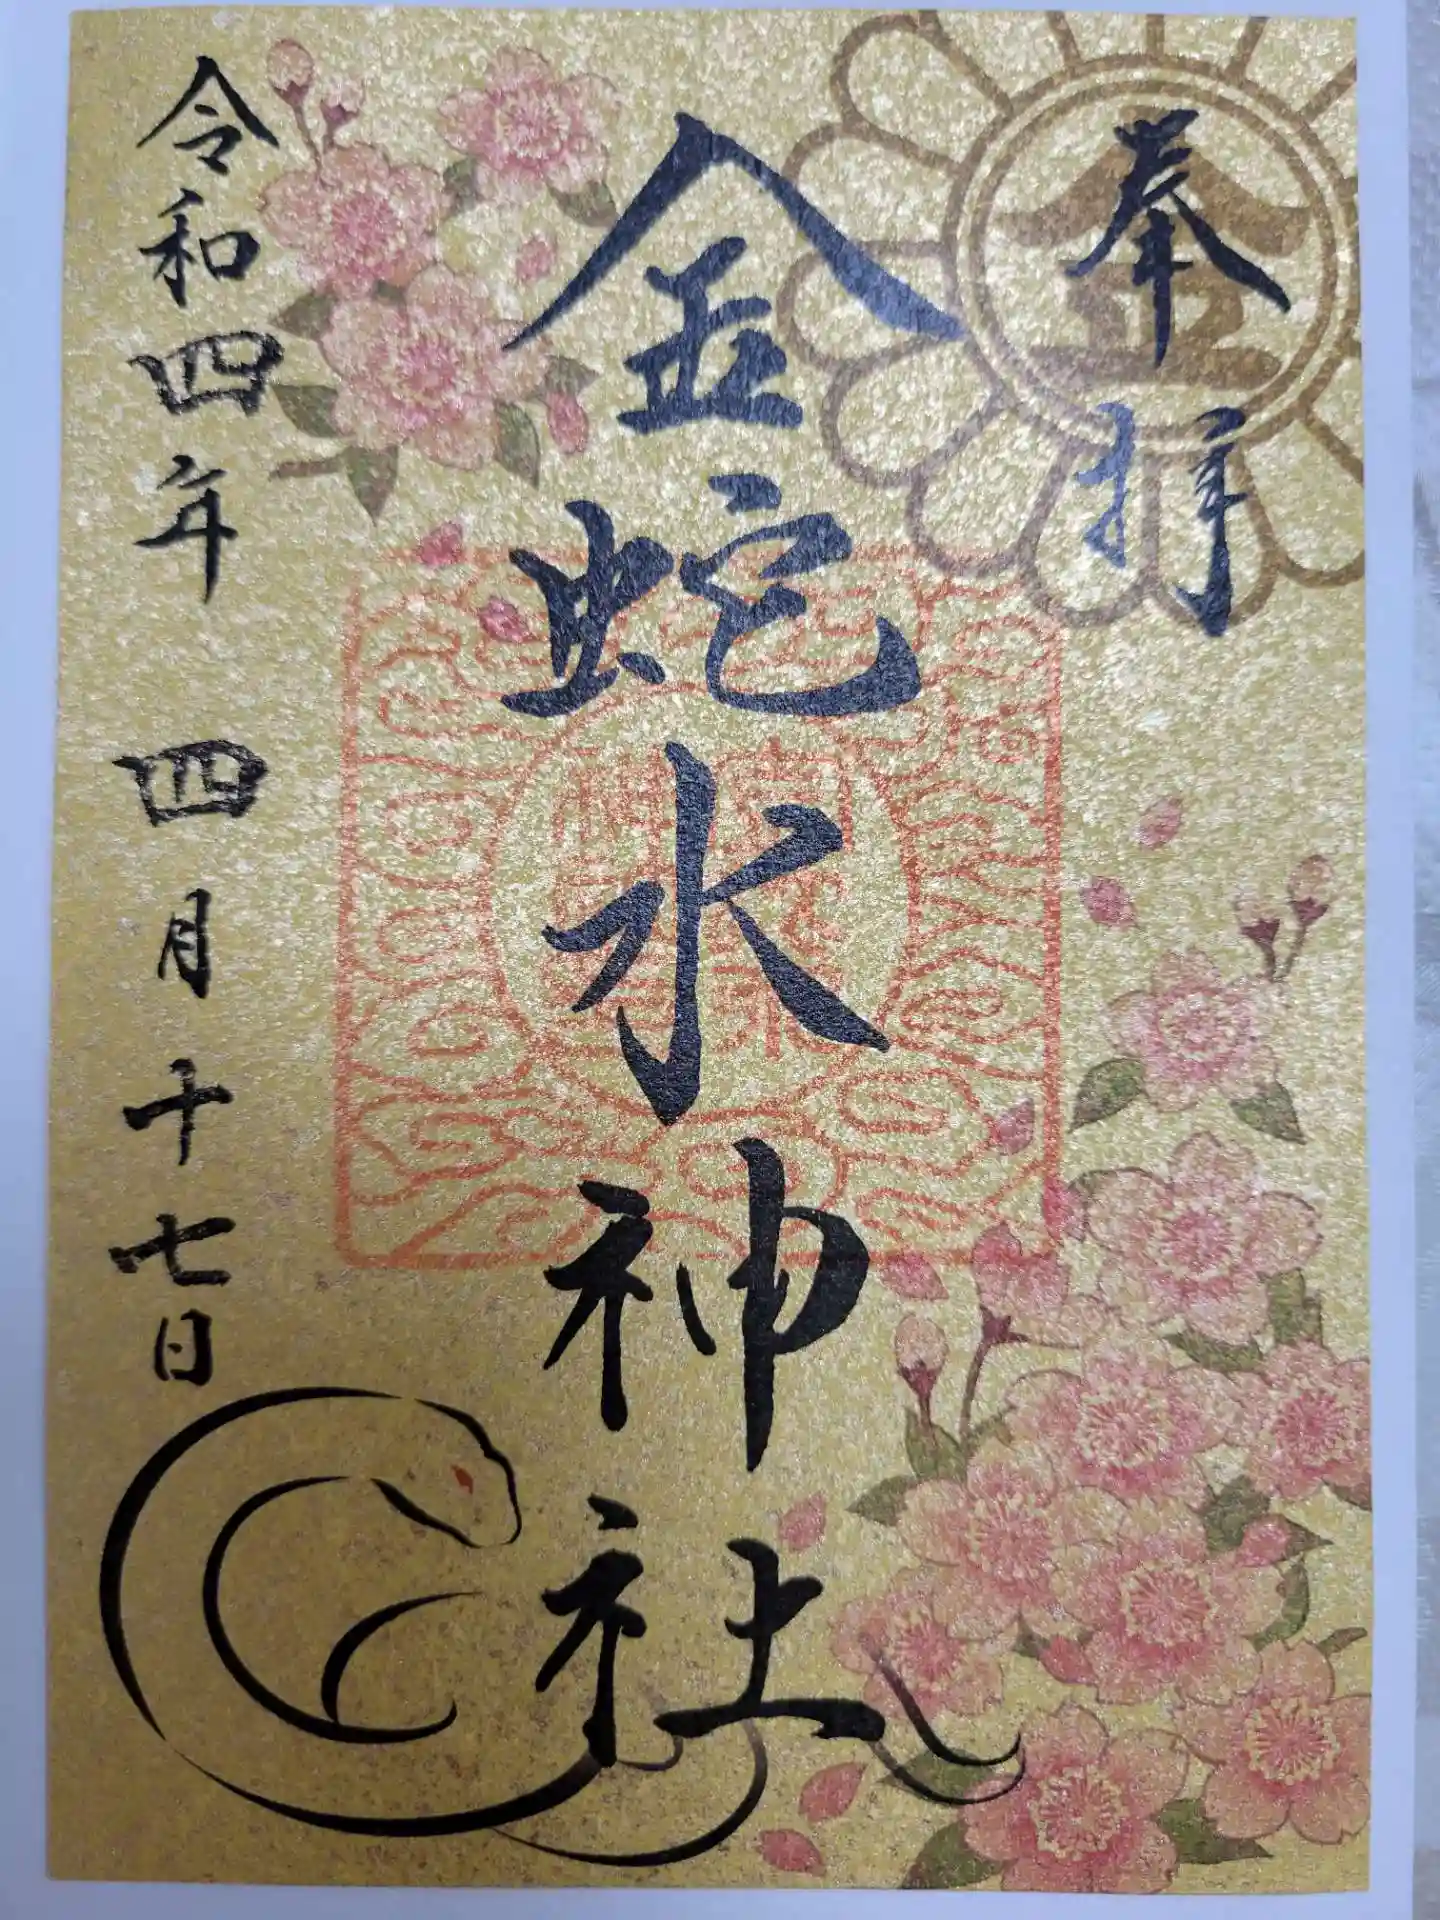 奉拝
金
金蛇水神社
令和四年 四月十七日